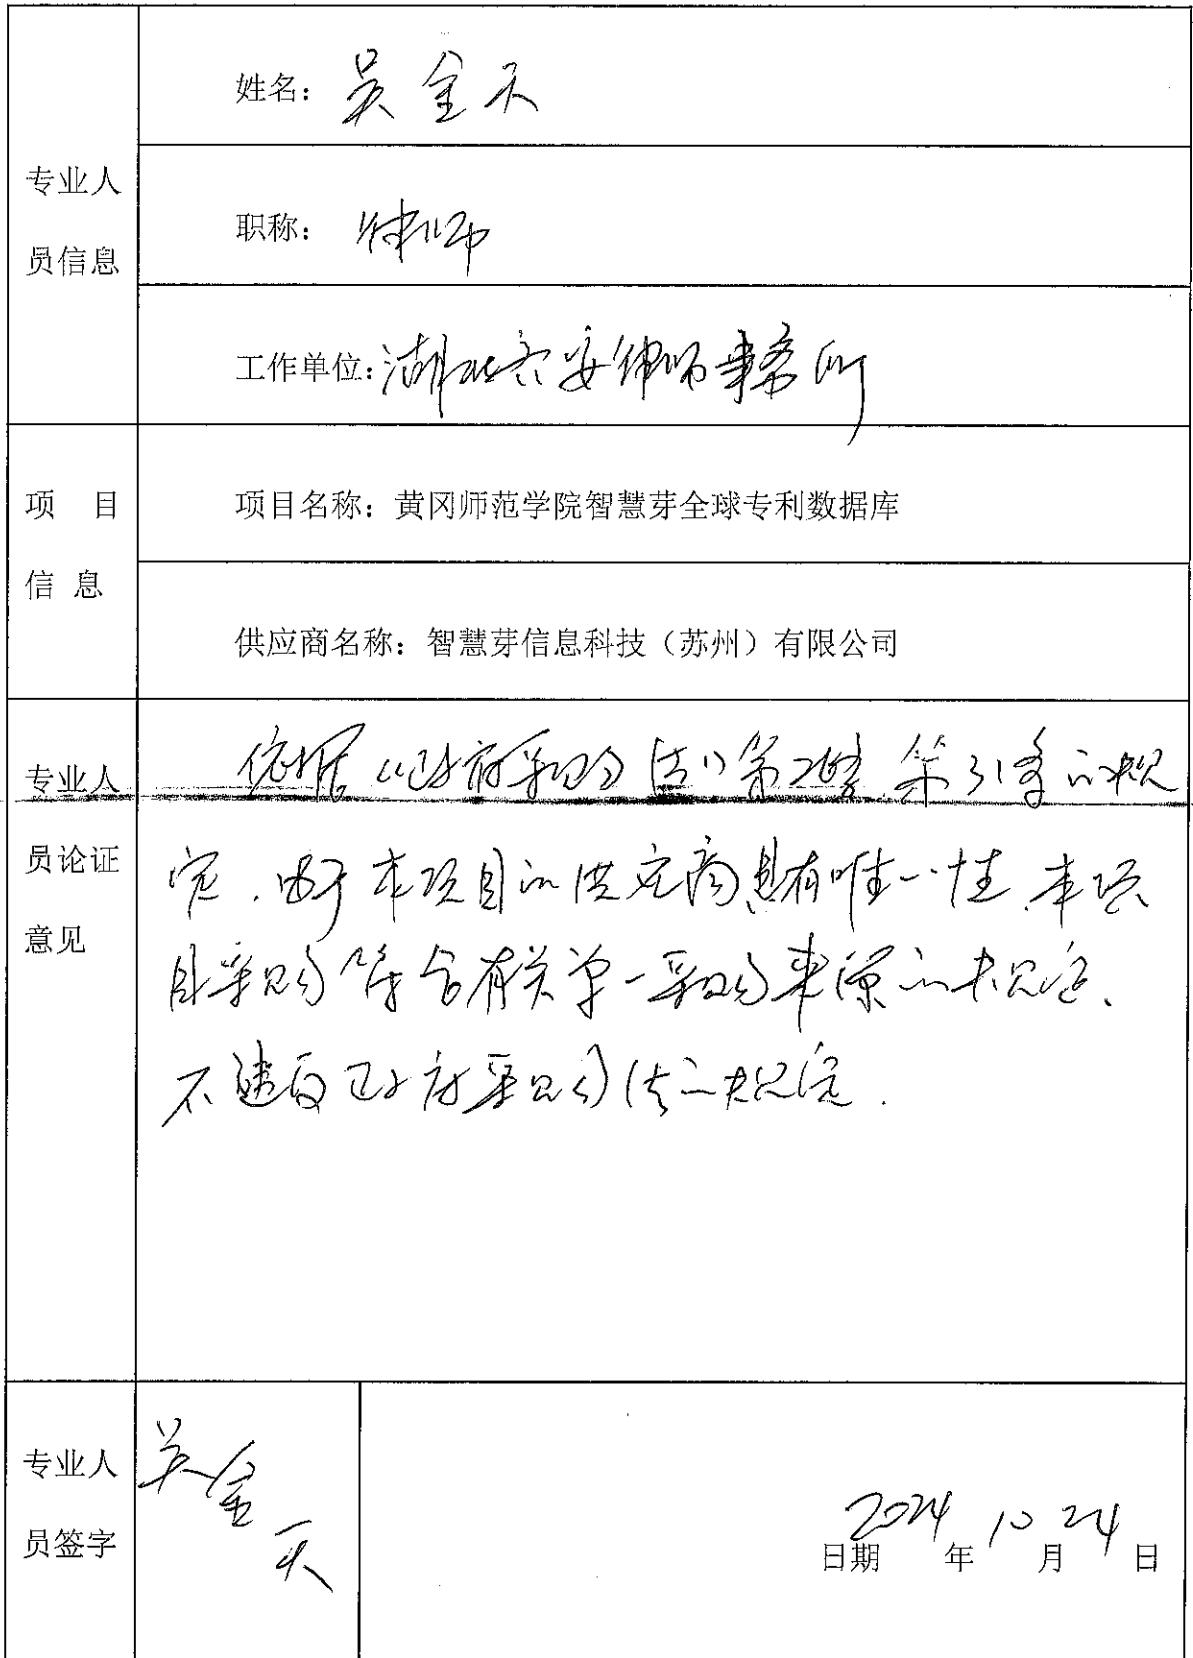 专业人
员信息
姓名：吴金天
职称：律师
工作单位：湖北 安律师事务所
项 目
信 息
项目名称：黄冈师范学院智慧芽全球专利数据库
供应商名称：智慧芽信息科技（苏州）有限公司
专业人
员论证
意见
依据《政府采购法》第 第31条的规
定，由于本项目的供应商具有唯一性，本项
目采购符合有关单一采购来源的规定、
不违反政府采购法的规定.
专业人
员签字
吴金天
日期 2024年10月24日